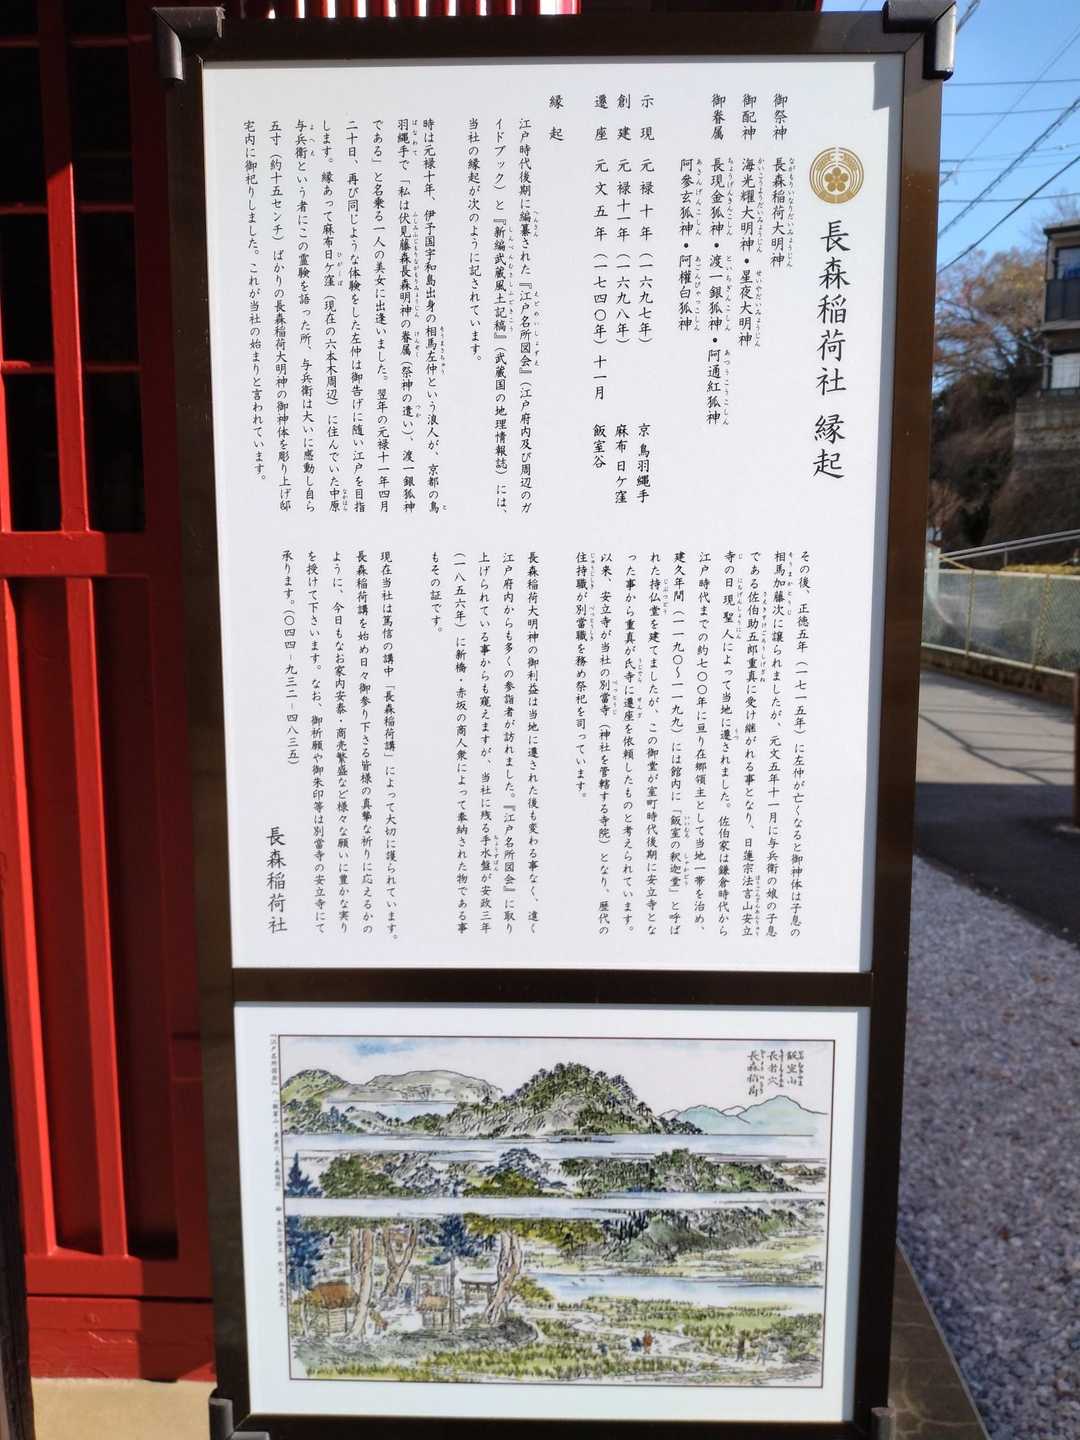 長森稲荷社 縁起
御祭神 長森稲荷大明神
御配神 海光耀大明神・星夜大明神
御眷属 長現金狐神・渡一銀狐神・阿通紅狐神
阿參玄狐神・阿權白狐神
示現 元禄十年（一六九七年） 京 鳥羽縄手
創建 元禄十一年（一六九八年） 麻布 日ケ窪
遷座 元文五年（一七四〇年）十一月 飯室谷
縁起
江戸時代後期に編纂された『江戸名所図会』（江戸府内及び周辺のガ
イドブック）と『新編武蔵風土記稿』（武蔵国の地理情報誌）には、
当社の縁起が次のように記されています。
時は元禄十年、伊予国宇和島出身の相馬左仲という浪人が、京都の鳥
羽縄手で「私は伏見藤森長森明神の眷属（祭神の遣い）、渡一銀狐神
である」と名乗る一人の美女に出逢いました。翌年の元禄十一年四月
二十日、再び同じような体験をした左仲は御告げに随い江戸を目指
します。縁あって麻布日ケ窪（現在の六本木周辺）に住んでいた中原
与兵衛という者にこの霊験を語った所、与兵衛は大いに感動し自ら
五寸（約十五センチ）ばかりの長森稲荷大明神の御神体を彫り上げ邸
宅内に御祀りしました。これが当社の始まりと言われています。
その後、正徳五年（一七一五年）に左仲が亡くなると御神体は子息の
相馬加藤次に譲られましたが、元文五年十一月に与兵衛の娘の子息
である佐伯助五郎重真に受け継がれる事となり、日蓮宗法言山安立
寺の日現聖人によって当地に遷されました。佐伯家は鎌倉時代から
江戸時代までの約七〇〇年に亘り在郷領主として当地一帯を治め、
建久年間（一一九〇〜一一九九）には館内に「飯室の釈迦堂」と呼ば
れた持仏堂を建てましたが、この御堂が室町時代後期に安立寺とな
った事から重真が氏寺に遷座を依頼したものと考えられています。
以来、安立寺が当社の別當寺（神社を管轄する寺院）となり、歴代の
住持職が別當職を務め祭祀を司っています。
長森稲荷大明神の御利益は当地に遷された後も変わる事なく、遠く
江戸府内からも多くの参詣者が訪れました。『江戸名所図会』に取り
上げられている事からも窺えますが、当社に残る手水盤が安政三年
（一八五六年）に新橋・赤坂の商人衆によって奉納された物である事
もその証です。
現在当社は篤信の講中「長森稲荷講」によって大切に護られています。
長森稲荷講を始め日々御参り下さる皆様の真摯な祈りに応えるかの
ように、今日もなお家内安泰・商売繁盛など様々な願いに豊かな実り
を授けて下さいます。なお、御祈願や御朱印等は別當寺の安立寺にて
承ります。（〇四四－九三二－四八三五）
長森稲荷社
飯室山
長者穴
長森稲荷
『江戸名所図会』八「飯室山・長者穴・長森稲荷」